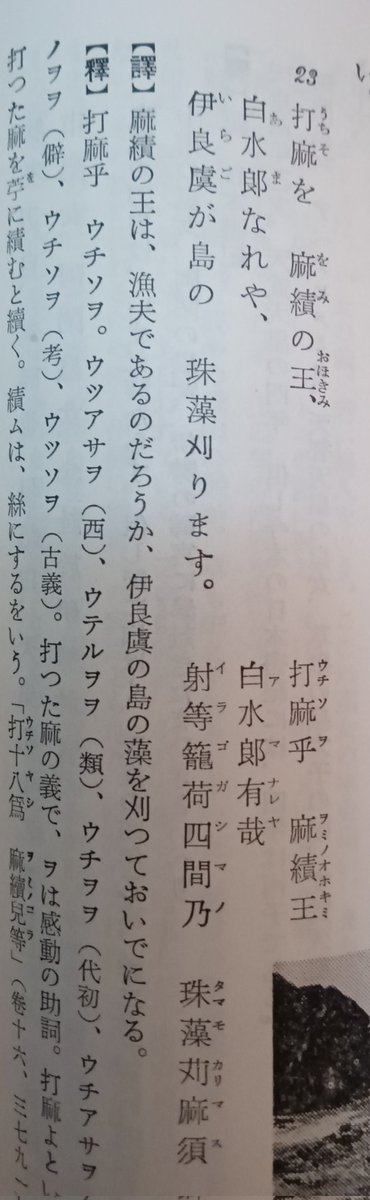 23 打麻を 麻績の王、
白水郎なれや、
伊良虞が島の 珠藻刈ります。
打麻乎 麻績王
白水郎有哉
射等籠荷四間乃 珠藻苅麻須
【譯】 麻績の王は、漁夫であるのだろうか、伊良虞の島の藻を刈つておいでになる。
【釋】 打麻乎 ウチソヲ。ウツアサヲ（西）、ウテルヲヲ（類）、ウチヲヲ（代初）、ウチアサヲ
ノヲヲ（僻）、ウチソヲ（考）、ウツソヲ（古義）。打つた麻の義で、ヲは感動の助詞。打麻よとい
打つた麻を苧に績むと續く。績ムは、絲にするをいう。「打十八爲 麻續兒等」（卷十六、三七九一